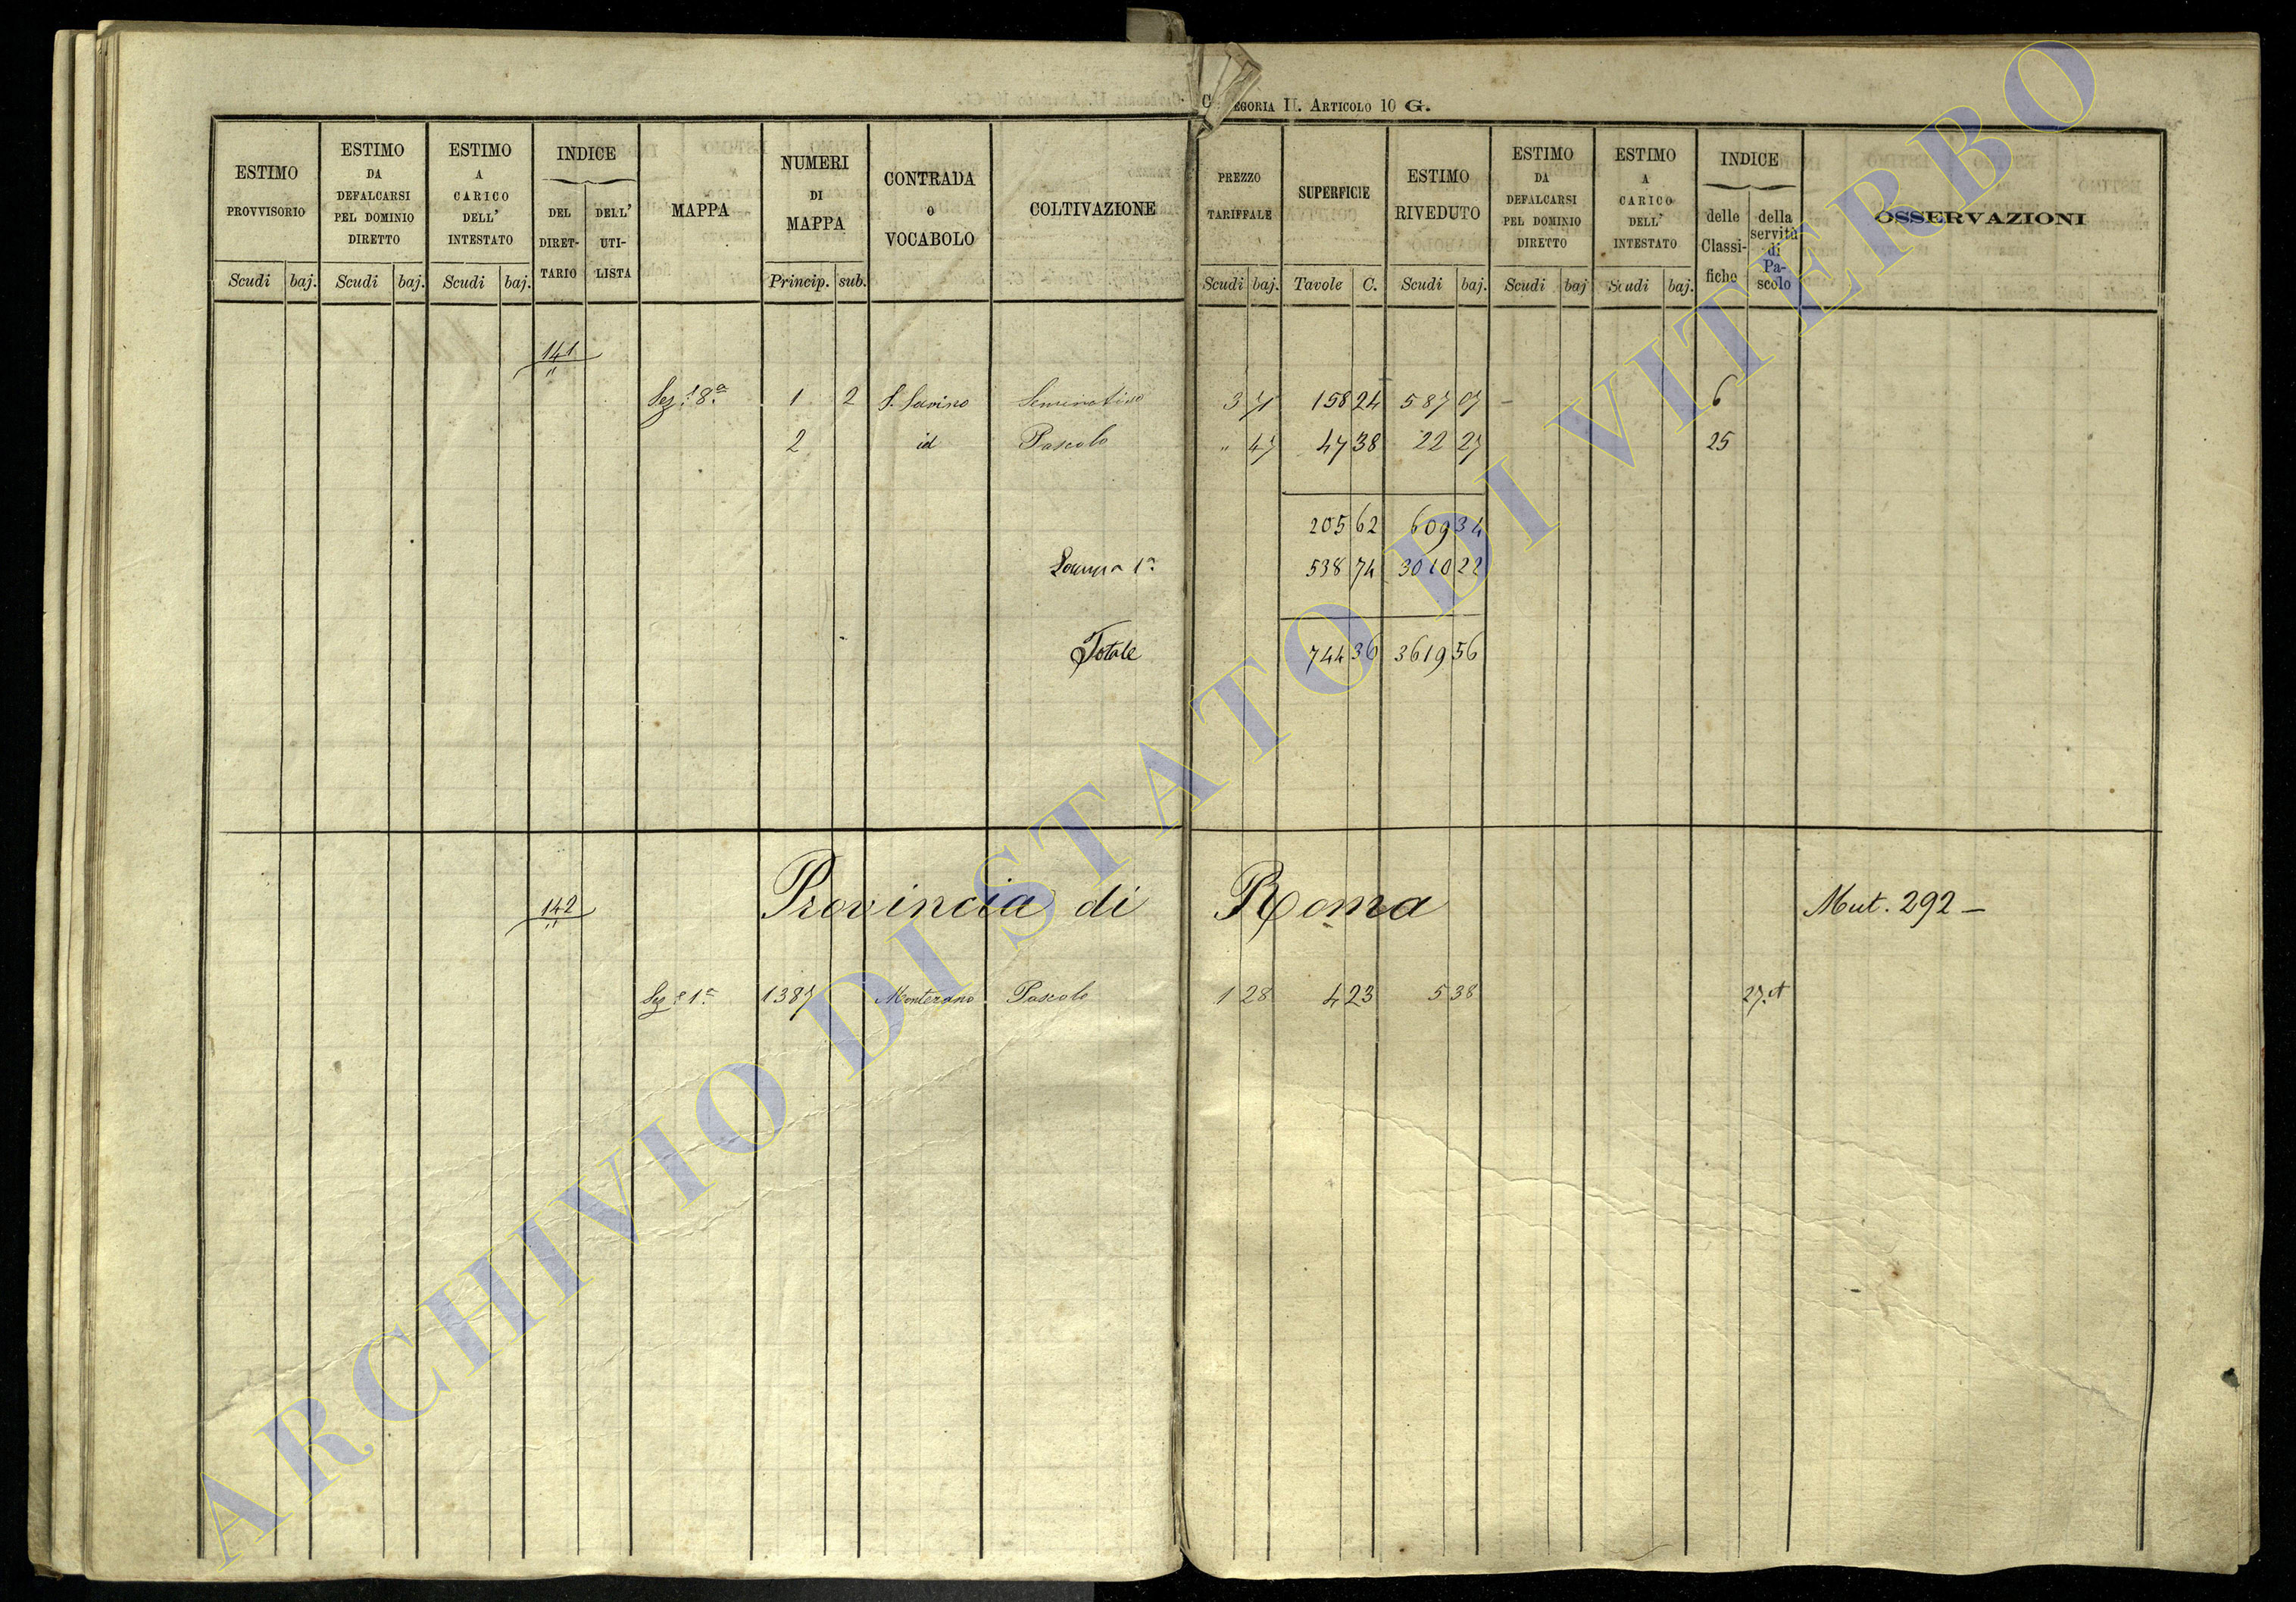 CATEGORIA II. ARTICOLO 10 G.
ESTIMO PROVVISORIO
ESTIMO DA DEFALCARSI PEL DOMINIO DIRETTO
ESTIMO A CARICO DELL' INTESTATO
INDICE
DEL DIRETTARIO
DELL' UTILISTA
MAPPA
NUMERI DI MAPPA
CONTRADA O VOCABOLO
COLTIVAZIONE
PREZZO TARIFFALE
SUPERFICIE
ESTIMO RIVEDUTO
ESTIMO DA DEFALCARSI PEL DOMINIO DIRETTO
ESTIMO A CARICO DELL' INTESTATO
INDICE
delle Classifiche
della servitù di Pascolo
OSSERVAZIONI
Scudi baj. Scudi baj. Scudi baj. Princip. sub. Scudi baj. Tavole C. Scudi baj. Scudi baj Scudi baj.
141
Sez.e 8a 1 2 S. Savino Seminativo 3 71 158 24 587 07 6
2 id Pascolo " 47 47 38 22 27 25
205 62 609 34
1a 538 74 3010 22
Totale 744 36 3619 56
142 Provincia di Roma Mut. 292 –
Sez.e 1a 1387 Monterano Pascolo 1 28 4 23 5 38 27.
ARCHIVIO DI STATO DI VITERBO